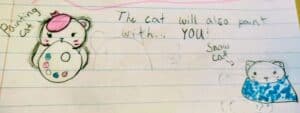 Painting
cat
The cat will also paint
with... YOU!
Snow
cat